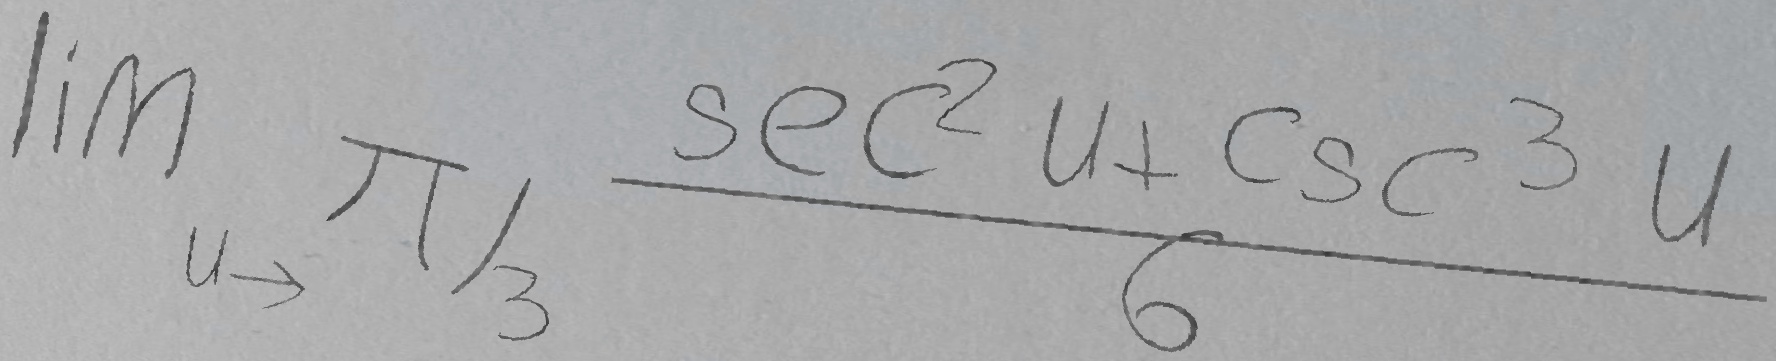 lim u→π/3 (sec² u + csc³ u)/6